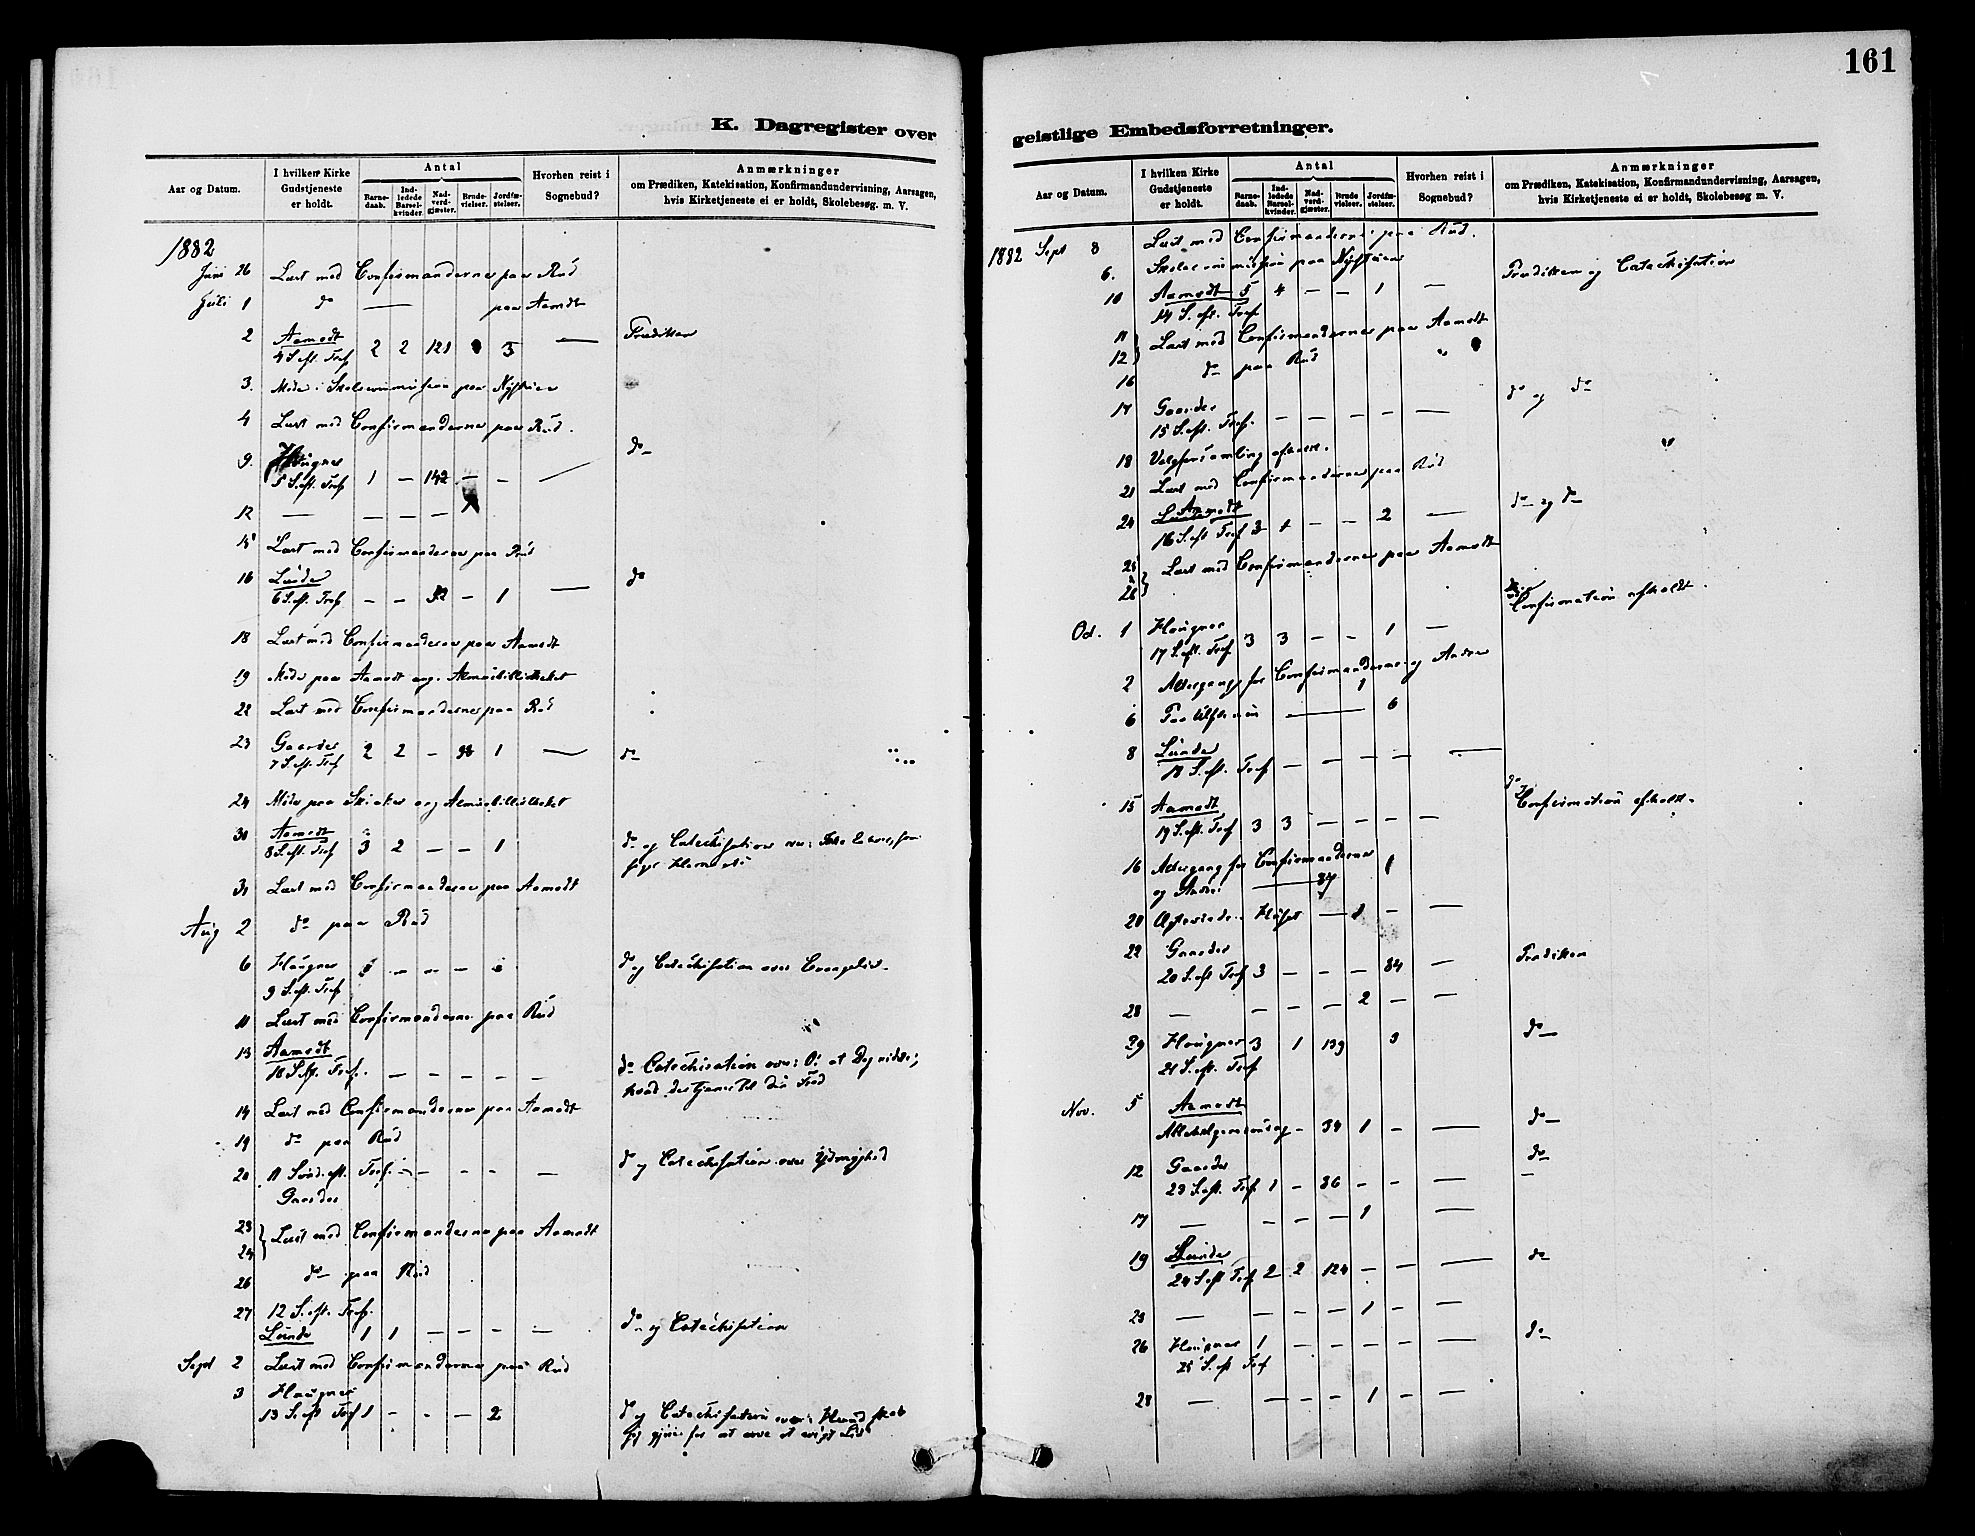 161
K. Dagregister over
geistlige Embedsforretninger.
Aar og Datum.
I hvilken Kirke Gudstjeneste er holdt.
Antal
Barnedaab.
Indledede Barselkvinder.
Nadverdgjæster.
Brudevielser.
Jordfæstelser.
Hvorhen reist i Sognebud?
Anmærkninger
om Prædiken, Katekisation, Konfirmandundervisning, Aarsagen,
hvis Kirketjeneste ei er holdt, Skolebesøg. m. V.
1882
Juni 26 Læst med Confirmanderne paa Rud
Juli 1 do — paa Aamodt
2 Aamodt
4 S. eft. Tref 2 2 121 3 — Prædiken
3. Møde i Skolecommission paa
4 Læst med Confirmanderne paa Rud.
9. Haugner do
5 S. eft. Tref 1 — 142 — — —
12 — — — — —
15 Læst med Confirmanderne paa Rud
16 Lunde do
6 S. eft. Tref — — 32 — 1 —
18 Læst med Confirmanderne paa Aamodt
19 Møde paa Aamodt ang.
22 Læst med Confirmanderne paa Rud
23 Gaarder 2 2 — 1 — do
7 S. eft. Tref
24 Møde paa ang
30 Aamodt
8 S. eft. Tref 3 2 — — 1 do og Catechisation over:
31 Læst med Confirmanderne paa Aamodt
Aug 2 do paa Rud
6 Haugner — — — do og Catechisation over Evangeliet.
9 S. eft. Tref
11 Læst med Confirmanderne paa Rud
13 Aamodt
10 S. eft. Tref. — — — — — do Catechisation over:
hvad der tjener til din Fred
14 Læst med Confirmanderne paa Aamodt
19 do paa Rud
20 11 Sønd. eft. Tref. — — — — — do og Catechisation over Ydmyghed
Gaarder
23
24 } Læst med Confirmanderne paa Aamodt
26 do paa Rud
27 12 S. eft. Tref.
Lunde 1 1 — — — — do og Catechisation
Sept 2 Læst med Confirmanderne paa Rud
3 Haugner
13 S. eft Tref 1 — — — 2 do og Catechisation over: Hvad skal
jeg gjøre for at arve et evigt Liv
Aar og Datum.
I hvilken Kirke Gudstjeneste er holdt.
Antal
Barnedaab.
Indledede Barselkvinder.
Nadverdgjæster.
Brudevielser.
Jordfæstelser.
Hvorhen reist i Sognebud?
Anmærkninger
om Prædiken, Katekisation, Konfirmandundervisning, Aarsagen,
hvis Kirketjeneste ei er holdt, Skolebesøg m. V.
1882 Sept 8 Læst med Confirmanderne paa Rud.
6. Skolecommission paa
10 Aamodt 5 4 — — 1 — Prædiken og Catechisation
14 S. eft. Tref
11
12 } Læst med Confirmanderne paa Aamodt
16 do paa Rud
17 Gaarder do og do
15 S. eft. Tref. — — — — — —
18 Valgforsamling afholdt.
21 Læst med Confirmanderne paa Rud
24 Aamodt do og do
16 S. eft Tref 3 1 — — 2 —
25
26 } Læst med Confirmanderne paa Aamodt
Oct. 1 Haugner Confirmation afholdt.
17 S. eft. Tref 3 3 — — 1 —
2 Altergang for Confirmanderne og Andre
6 — 1 6
8 Lunde
18 S. eft. Tref — — — — —
15 Aamodt do og Confirmation afholdt.
19 S. eft. Tref 3 3 — — — —
16 Altergang for Confirmanderne
og Andre — 87 1
20 — 1 — —
22 Gaarder
20 S. eft Tref 3 — — — 84 — Prædiken
28 — — — — 2 — —
29 Haugner 3 1 139 9 do
21 S. eft. Tref
Nov. 5 Aamodt
Allehelgensdag — 34 1 — — do
12 Gaarder do
23 S. eft. Tref 1 — 36 — — —
17 — — — — 1
19 Lunde do
24 S. eft Tref 2 2 124 — — —
23 — — — — 1 — —
26 Haugner 1 — — — — — do
25 S. eft Tref
28 — — — — 1 — —